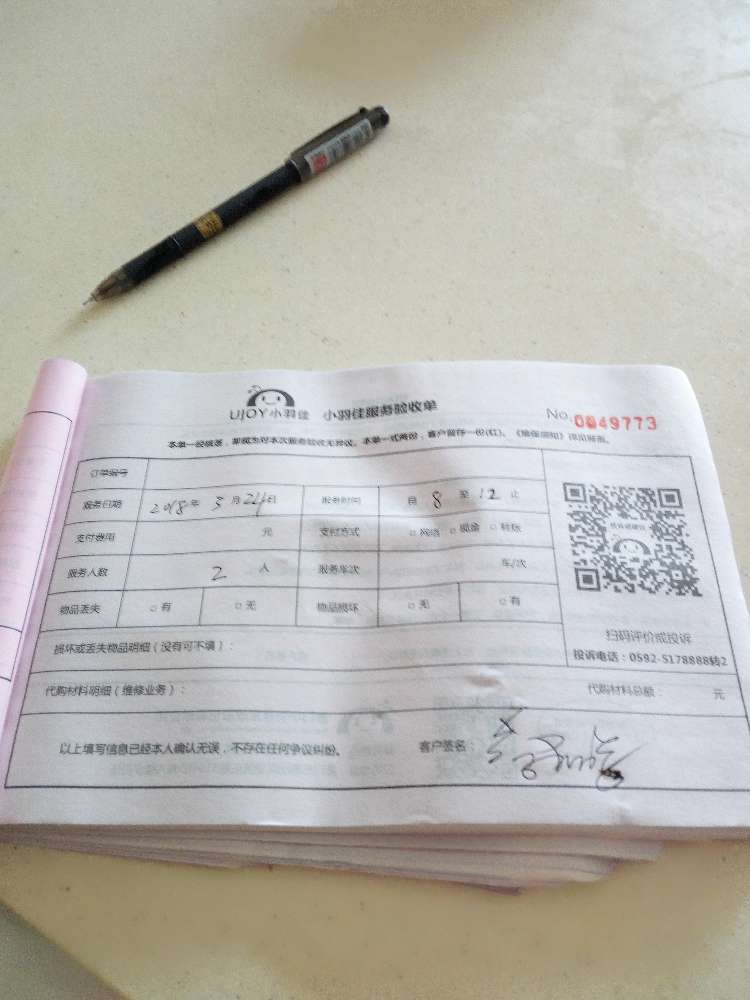 UJOY小羽佳 小羽佳服务验收单 No.0049773
本单一经填落,即视为对本次服务验收无异议。本单一式两份,客户留存一份(红)。
订单编号
服务日期 2018年 3月24日 服务时间 自 8 至 12 止
支付费用 元 支付方式 □网络 □现金 □转账
服务人数 2 人 服务车次 车/次
物品丢失 □有 □无 物品损坏 □无 □有
扫码评价或投诉
投诉电话:0592-5178888转2
损坏或丢失物品明细(没有可不填):
代购材料明细(维修业务): 代购材料总额: 元
以上填写信息已经本人确认无误,不存在任何争议纠纷。 客户签名: